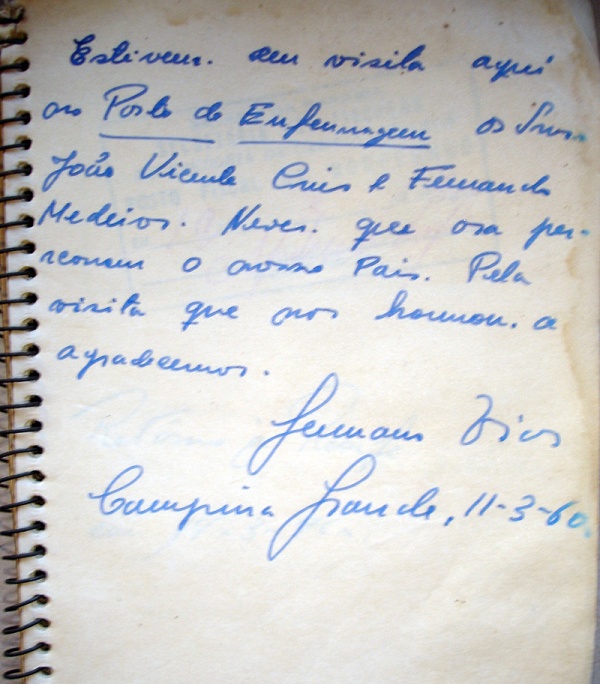 Estiveram em visita aqui
ao Posto de Enfermagem os Snrs.
João Vicente Cruz e Fernando
Medeiros Neves. que ora per-
correm o nosso Pais. Pela
visita que nos honrou. a
agradecemos.
Campina Grande, 11-3-60.